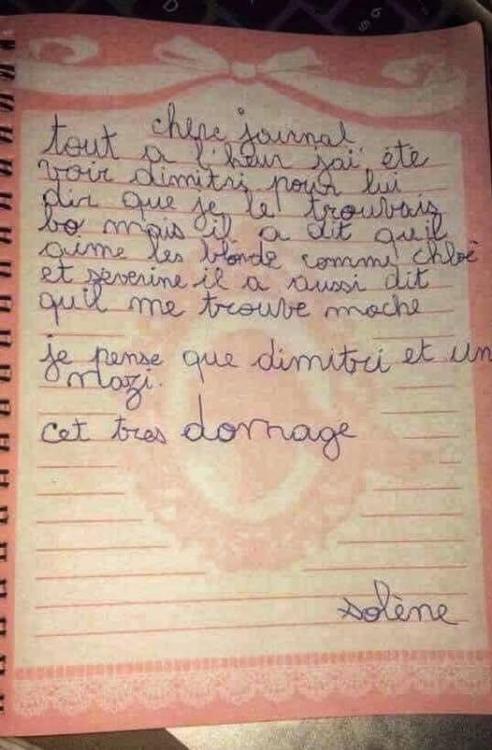 chere journal
tout a l'heur jai été
voir dimitri pour lui
dir que je le trouvais
bo mais il a dit quil
aime les blonde comme chloé
et severine il a aussi dit
quil me trouve moche
je pense que dimitri et un
nazi.
cet tres domage
solène